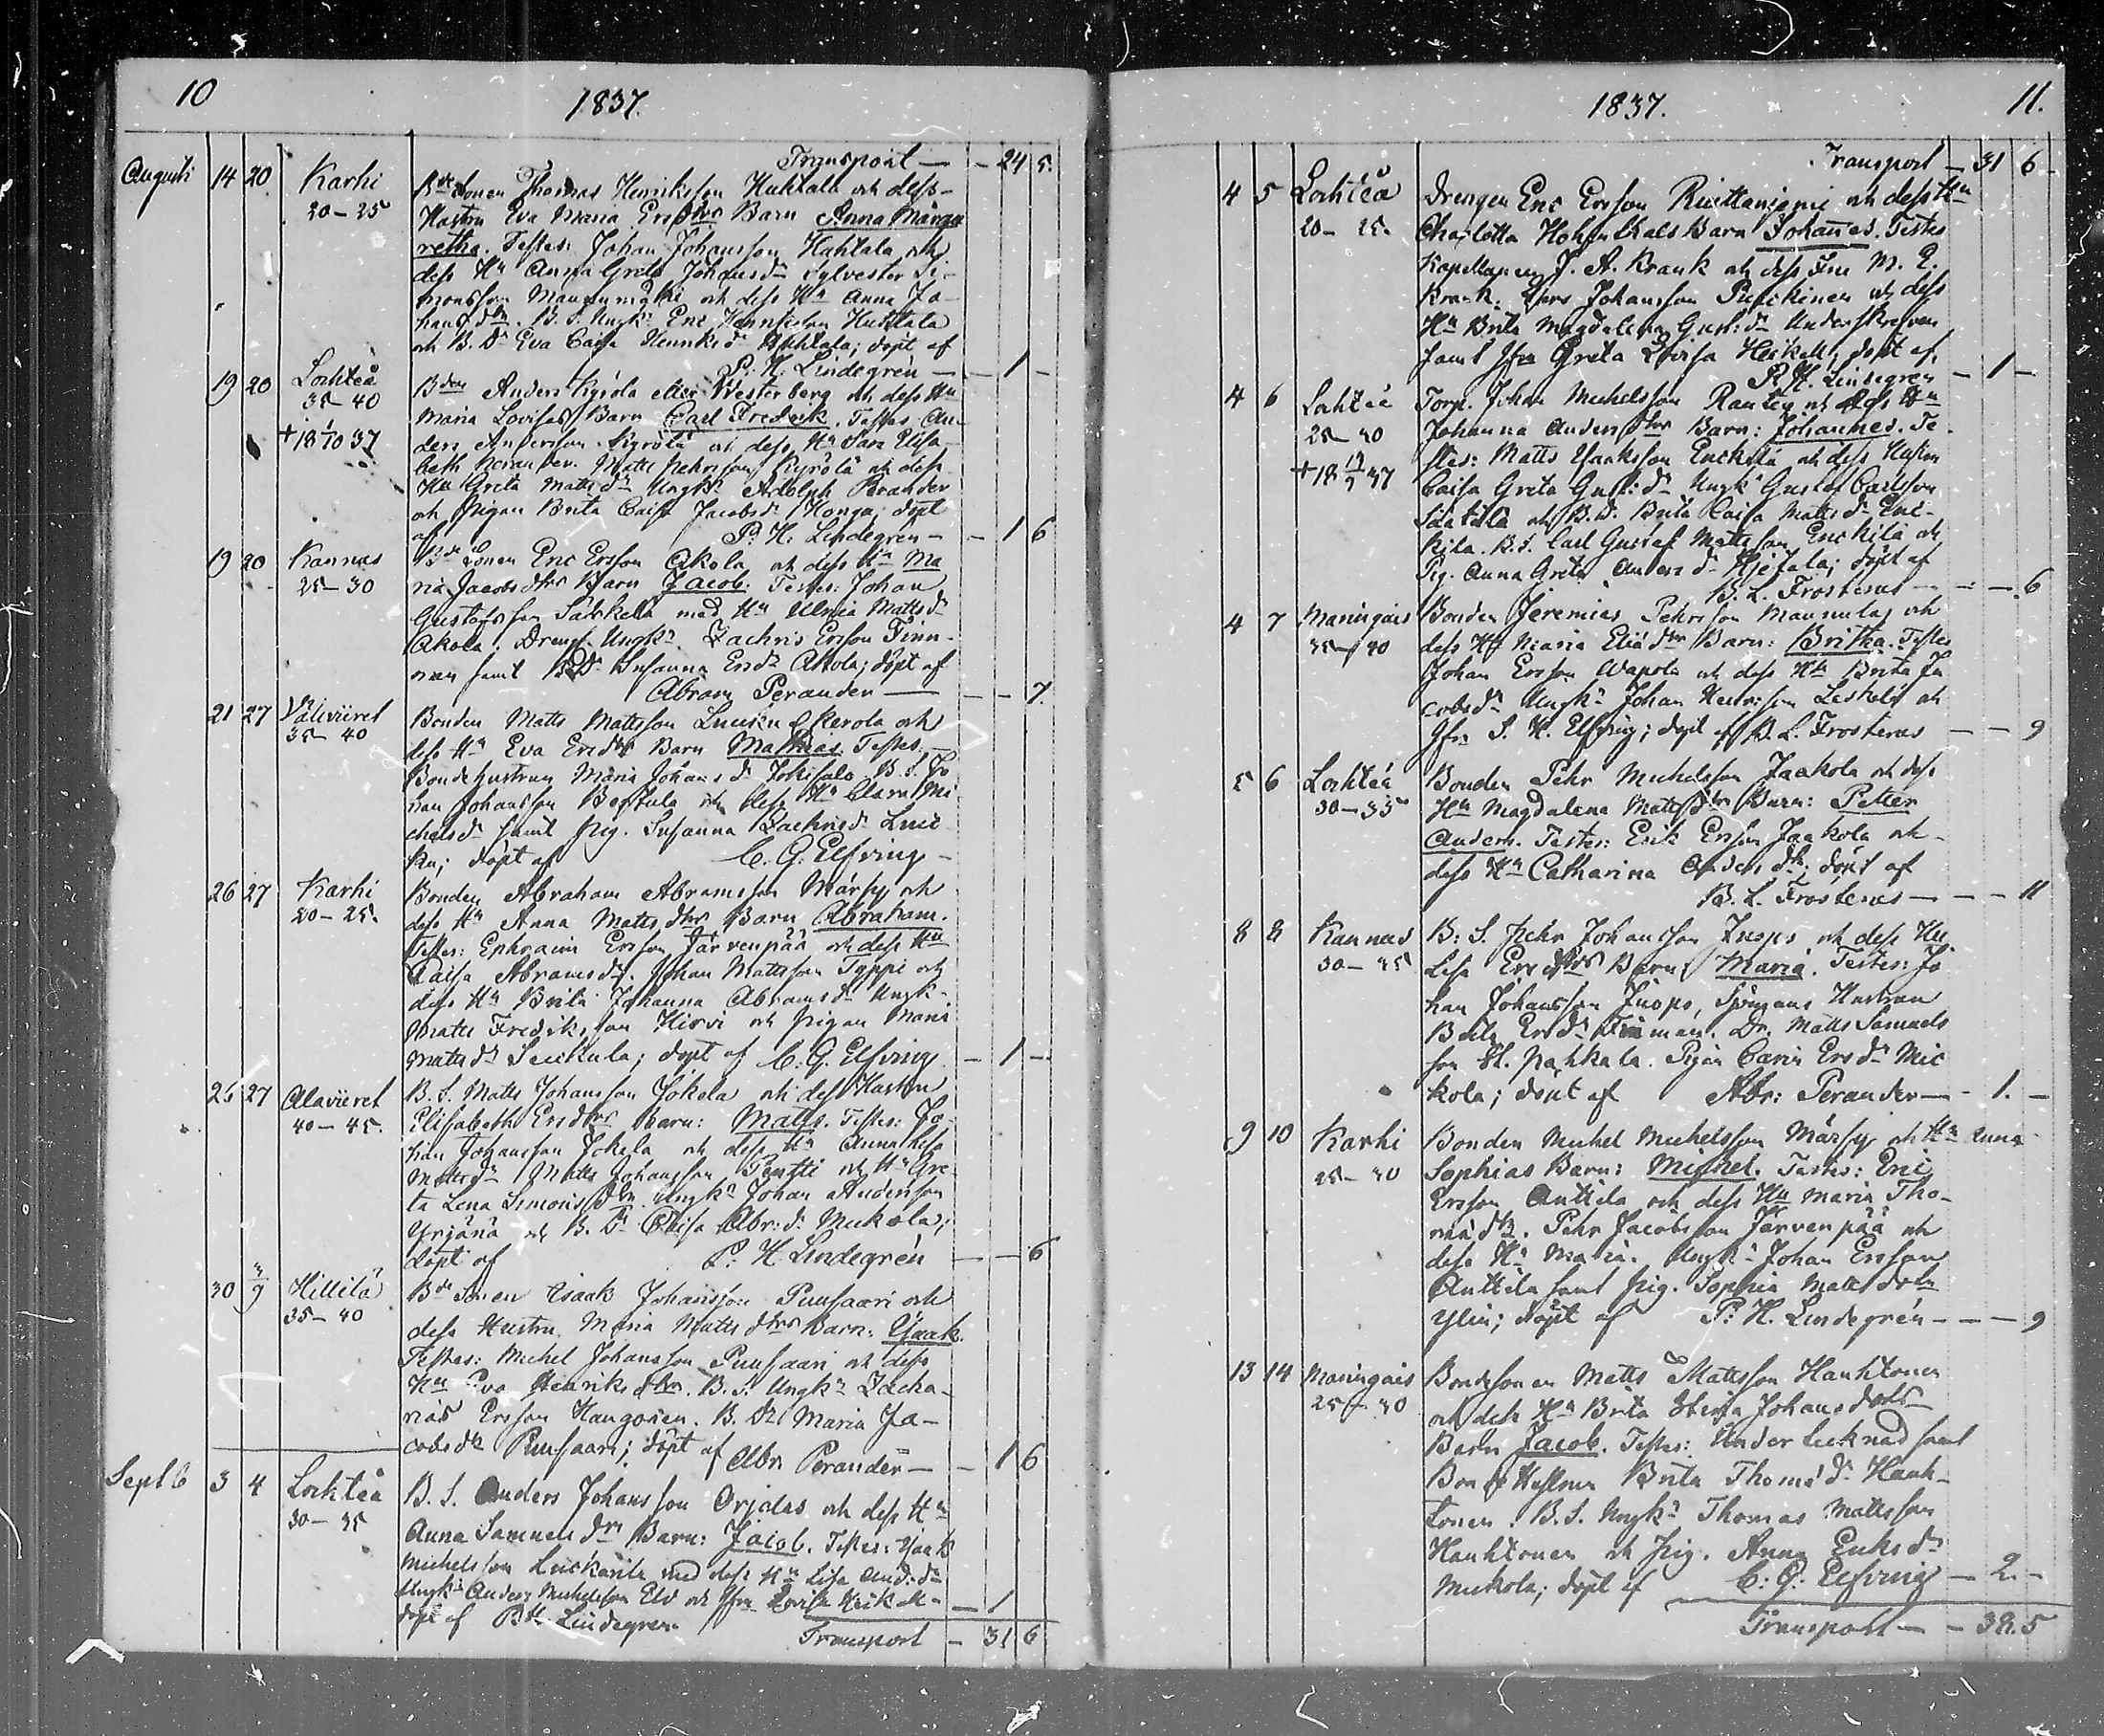 10
1837.
Transport — 24 5.
Augusti 14 20 Karhi Bde Sonen Thomas Henriksson Huhtala och dess
20–25 Hustru Eva Maria Ersdtrs Barn Anna Marga
retha. Testes: Johan Johansson Huhtala och
dess Hu Anna Greta Johansdr Sylvester Si-
monsson och dess Hu Anna Jo-
hansdtr. B. S. Ungkn Eric Henriksson Huhtala
och B. Dr Eva Caisa Henriksdr Huhtala; döpt af
P. H. Lindegrén — 1 –
19 20 Lochteå Bden Anders Kyrölä eller Westerberg och dess Hu
35–40 Maria Lovisas Barn Carl Fredrik. Testes: An-
+ 18 1/10 37 ders Andersson Kyrölä och dess Hu Sara Elisa-
beth. Matts Pehrsson Kyrölä och dess
Hu Greta Mattsdr Ungkn Adolph Brander
och Pigan Brita Caisa Jacobsdr Honga; döpt
af P. H. Lindegrén – – 1 6
19 20 Kannas Bde Sonen Eric Ersson Akola och dess Hu Ma
25–30 ria Jacobsdtrs Barn Jacob. Testes: Johan
Gustafsson Särkelä med Hu Ulrica Mattsdr
Akola. Dreng. Ungkn Zachris Ersson Finn-
man samt B. Dr Susanna Ersdr Akola; döpt af
Abram Perander — – – 7.
21 27 Wäliviiret Bonden Matts Mattsson Kerola och
35–40 dess Hu Eva Ersdtrs Barn Mathias. Testes.
Bondehustrun Maria Johansdr Jokisalo B. S. Jo
han Johansson och dess Hu Clara Mi
chelsdr samt Pig. Susanna Zachrisdr
döpt af C. G. Elfving –
26 27 Karhi Bonden Abraham Abramsson Märsy och
20–25. dess Hu Anna Mattsdtrs Barn Abraham.
Testes: Ephraim Ersson Järvenpää och dess Hu
Caisa Abramsdr. Johan Mattsson Typpi och
dess Hu Brita Johanna Abramsdr Ungk.
Matts Fredriksson Hirvi och Pigan Maria
Mattsdr; döpt af C. G. Elfving – 1 –
26 27 Alaviiret B. S. Matts Johansson Jokela och dess Hustru
40–45. Elisabeth Ersdtrs Barn: Matts. Testes: Jo-
han Johansson Jokela och dess Hu Anna Lisa
Mattsdr Matts Johansson Pentti och Hu Gre-
ta Lena Simonsdtr Ungkn Johan Andersson
Yrjänä och B. Dr Caisa Abr:dr Miekola;
döpt af P. H. Lindegrén — – 6
30 3/9 Hillilä Bde Sonen Isaak Johansson Puusaari och
35–40 dess Hustru Maria Mattsdtrs Barn: Isaak.
Testes: Michel Johansson Puusaari och dess
Hu Eva Henriksdtr. B. S. Ungkn Zacha-
rias Ersson Haugosen. B. Dr Maria Ja-
cobsdr Puusaari; döpt af Abr. Perander — – 1 6
Septb 3 4 Lochteå B. S. Anders Johansson Orjalas och dess Hu
30–35 Anna Samuelsdrs Barn: Jacob. Testes: Isaak
Michelsson med dess Hu Lisa And:dr
Ungkn Anders Michelsson och Jfru Lovisa – 1
döpt af P. H. Lindegren.
Transport – 31 6
1837.
11.
Transport – 31 6
4 5 Lochteå Drengen Eric Ersson Riuttanjemi och dess Hu
20–25. Charlotta Hohenthals Barn Johannes. Testes
Kapellanen J. A. Krank och dess Fru M. E.
Krank. Lars Johansson och dess
Hu Brita Magdalena Gust:dr Underskrefven
samt Jfru Greta Lovisa döpt af
P. H. Lindegren – 1 –
4 6 Lochteå Torp. Johan Michelsson Rauten och dess Hu
25–30 Johanna Andersdtrs Barn: Johannes. Te-
+ 18 37 stes: Matts Isaksson Enckilä och dess Hustru
Caisa Greta Gust:dr Ungkn Gustaf Carlsson
och B. D. Brita Caisa Mattsdr Enc-
kilä. B. S. Carl Gustaf Mattsson Enckilä och
Pig. Anna Greta Andersdr; döpt af
B. L. Frosterus – – 6
4 7 Maringais Bonden Jeremias Pehrsson Mannula och
35–40 dess Hu Maria Eliædtrs Barn: Britha. Testes
Johan Ersson Wapola och dess Hu Brita Ja
cobsdr Ungkn Johan Henriksson Leskelä och
Jfru S. H. Elfving; döpt af B. L. Frosterus — – 9
5 6 Lochteå Bonden Pehr Michelsson Jaakola och dess
30–35 Hu Magdalena Mattsdtrs Barn: Petter
Anders. Testes: Erik Ersson Jaakola och
dess Hu Catharina Andersdtr; döpt af
B. L. Frosterus — – – 11
8 8 Kannas B: S. Pehr Johansson Juops och dess Hu
30–35 Lisa Ersdtrs Barn Maria. Testes: Jo
han Johansson Juops, Hustrun
Brita Ersdr Finman. Dr. Matts Samuels
son St. Pahkala. Pigan Carin Ersdr Mic
kola; döpt af Abr: Perander — – 1. –
9 10 Karhi Bonden Michel Michelsson Märsy och Hu Anna
25–30 Sophias Barn: Michel. Testes: Eric
Ersson Anttila och dess Hu Maria Tho-
mædtr. Pehr Jacobsson Järvenpää och
dess Hu Maria. Ungkn Johan Ersson
Anttila samt Pig. Sophia Mattsdotr
Ylin; döpt af P: H. Lindegrén – – – 9
13 14 Maringais Bondsonen Matts Mattsson Hanhtonen
25–30 och dess Hu Brita Stina Johansdotrs
Barn Jacob. Testes: Undertecknad samt
Bonde Hustrun Brita Thomædr Hanh-
tonen. B. S. Ungkn Thomas Mattsson
Hanhtonen och Pig. Anna Eriksdr
Miekola; döpt af C: G: Elfving – 2 –
Transport – – 38. 5